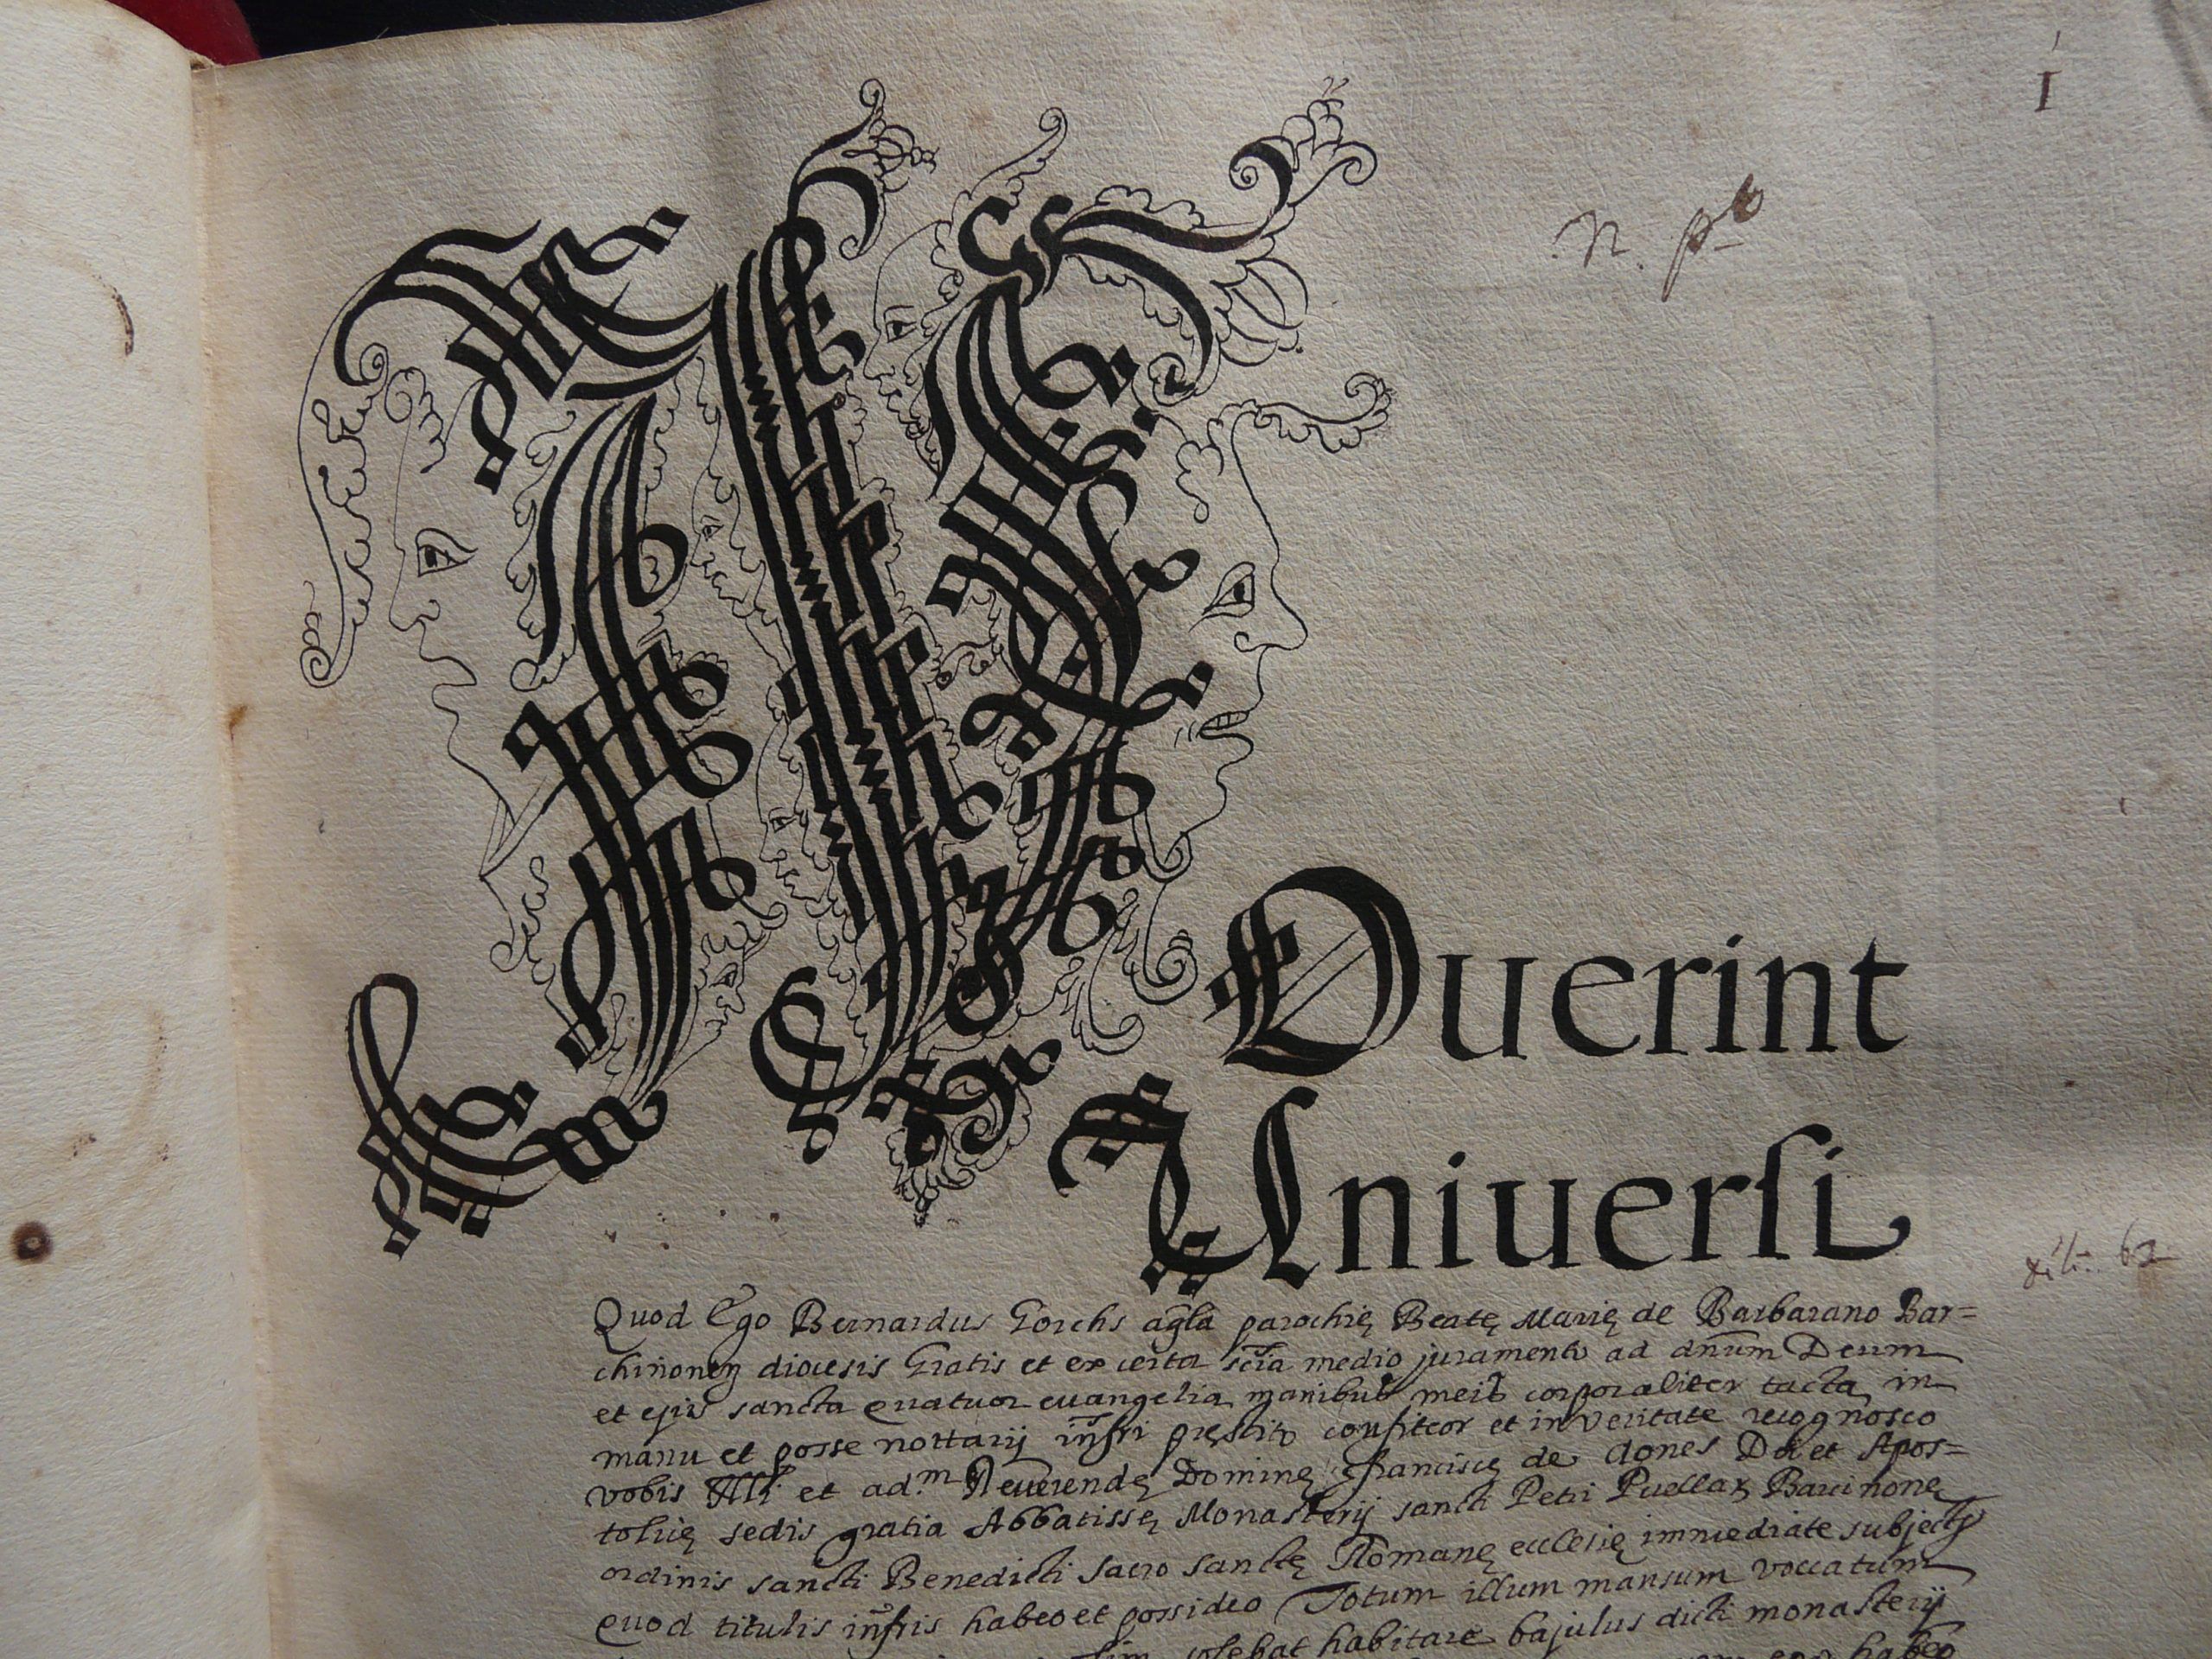 I
N. p^to
NOuerint
Uniuersi
Quod Ego Bernardus Gorchs agla parochię Beatę Marię de Barbarano Bar=
chinonen diocesis Gratis et ex certa scia medio juramento ad dnum Deum
et ejus sancta quatuor euangelia manibus meis corporaliter tacta in
manu et posse nottarij infri pręstito confiteor et in veritate recognosco
vobis Illi et ad.m Reuerendę Dominę Franciscę de Agnes Dei et Apos=
tolicę sedis gratia Abbatissę Monasterij sancti Petri Puellar Barcinonę
ordinis sancti Benedicti sacro sanctę Romanę ecclesię immediate subjectę
quod titulis infris habeo et possideo Totum illum mansum voccatum
solebat habitare bajulus dicti monasterij
ego habeo